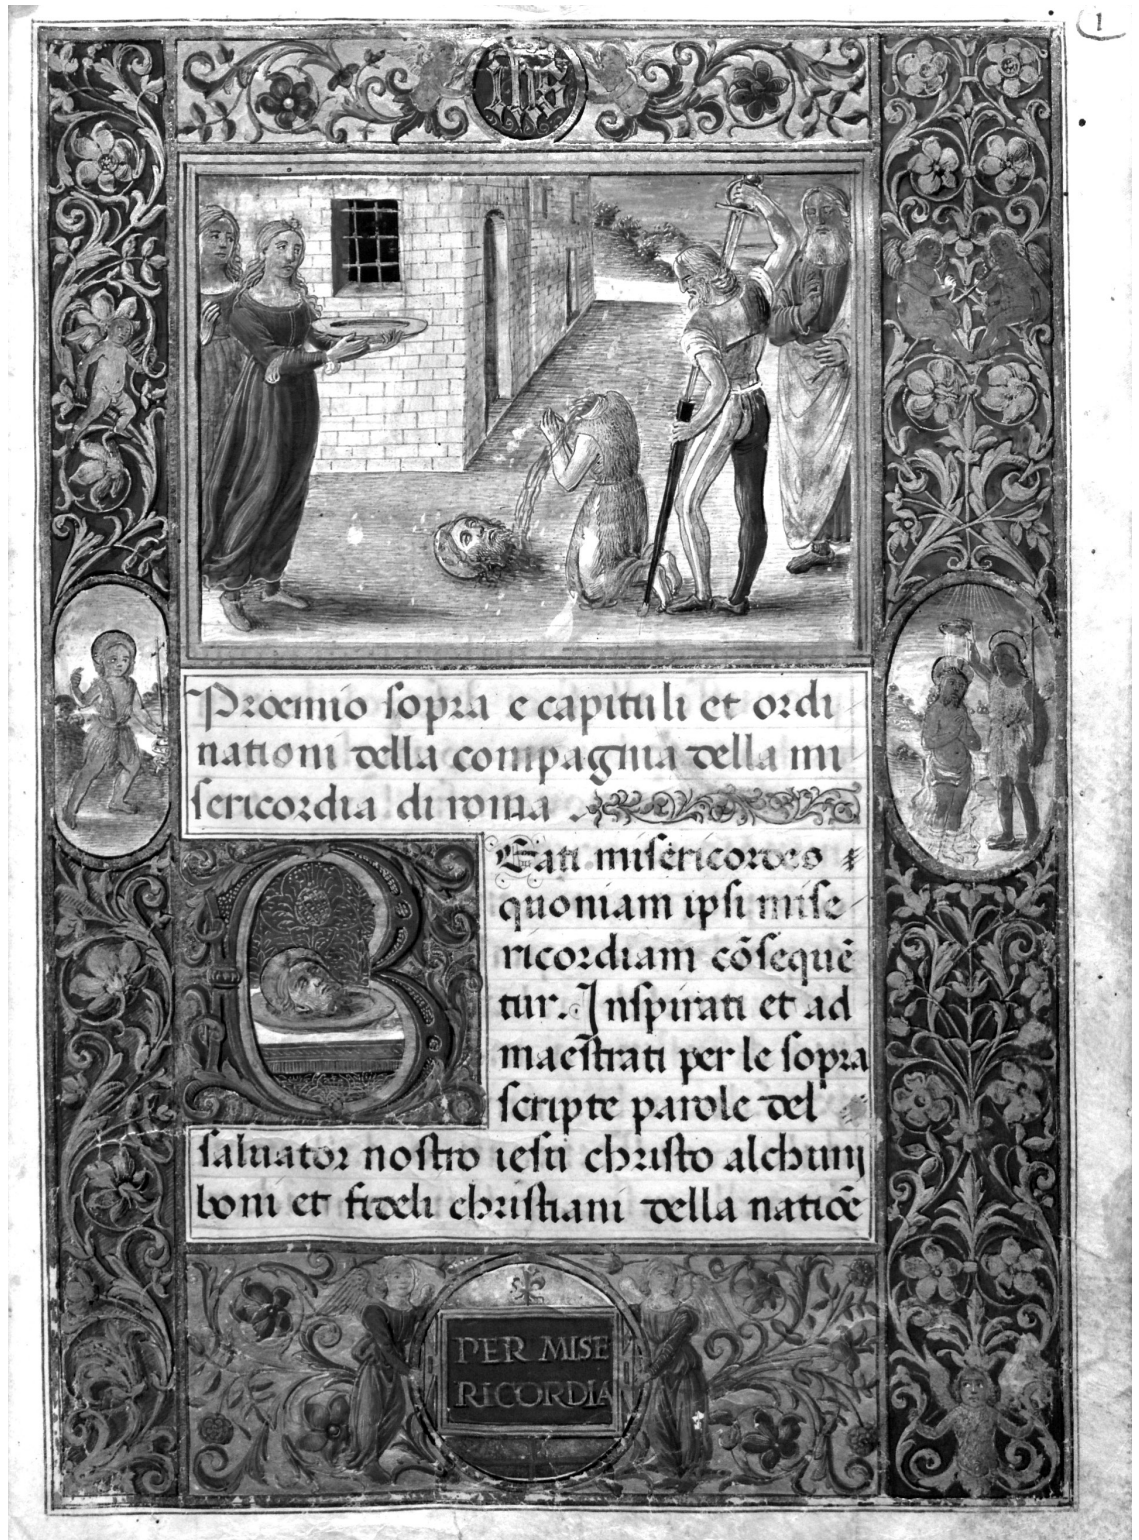 1
IHS
Proemio sopra e capituli et ordi
nationi della compagnia della mi
sericordia di roma
BEati misericordes
quoniam ipsi mise
ricordiam cōsequē
tur. Inspirati et ad
maestrati per le sopra
scripte parole del
saluator nostro iesu christo alchunj
boni et fideli christiani della natiōe
PER MISE
RICORDIA